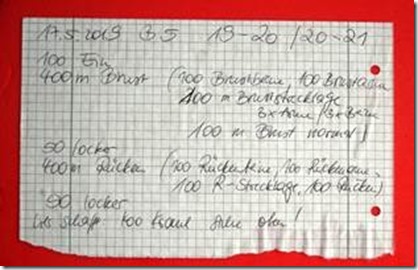 17.5.2019 G5 19-20 /20-21
100 Ein
400m Brust (100 Brustbeine, 100 Brustarme
100 m Brustrücklage
3x Arme / 3x Beine
100 m Brust normal)
50 locker
400m Rücken (100 Rückenbeine, 100 Rückenarme,
100 R-, 100 Rücken)
50 locker
100 Kraul siehe oben!